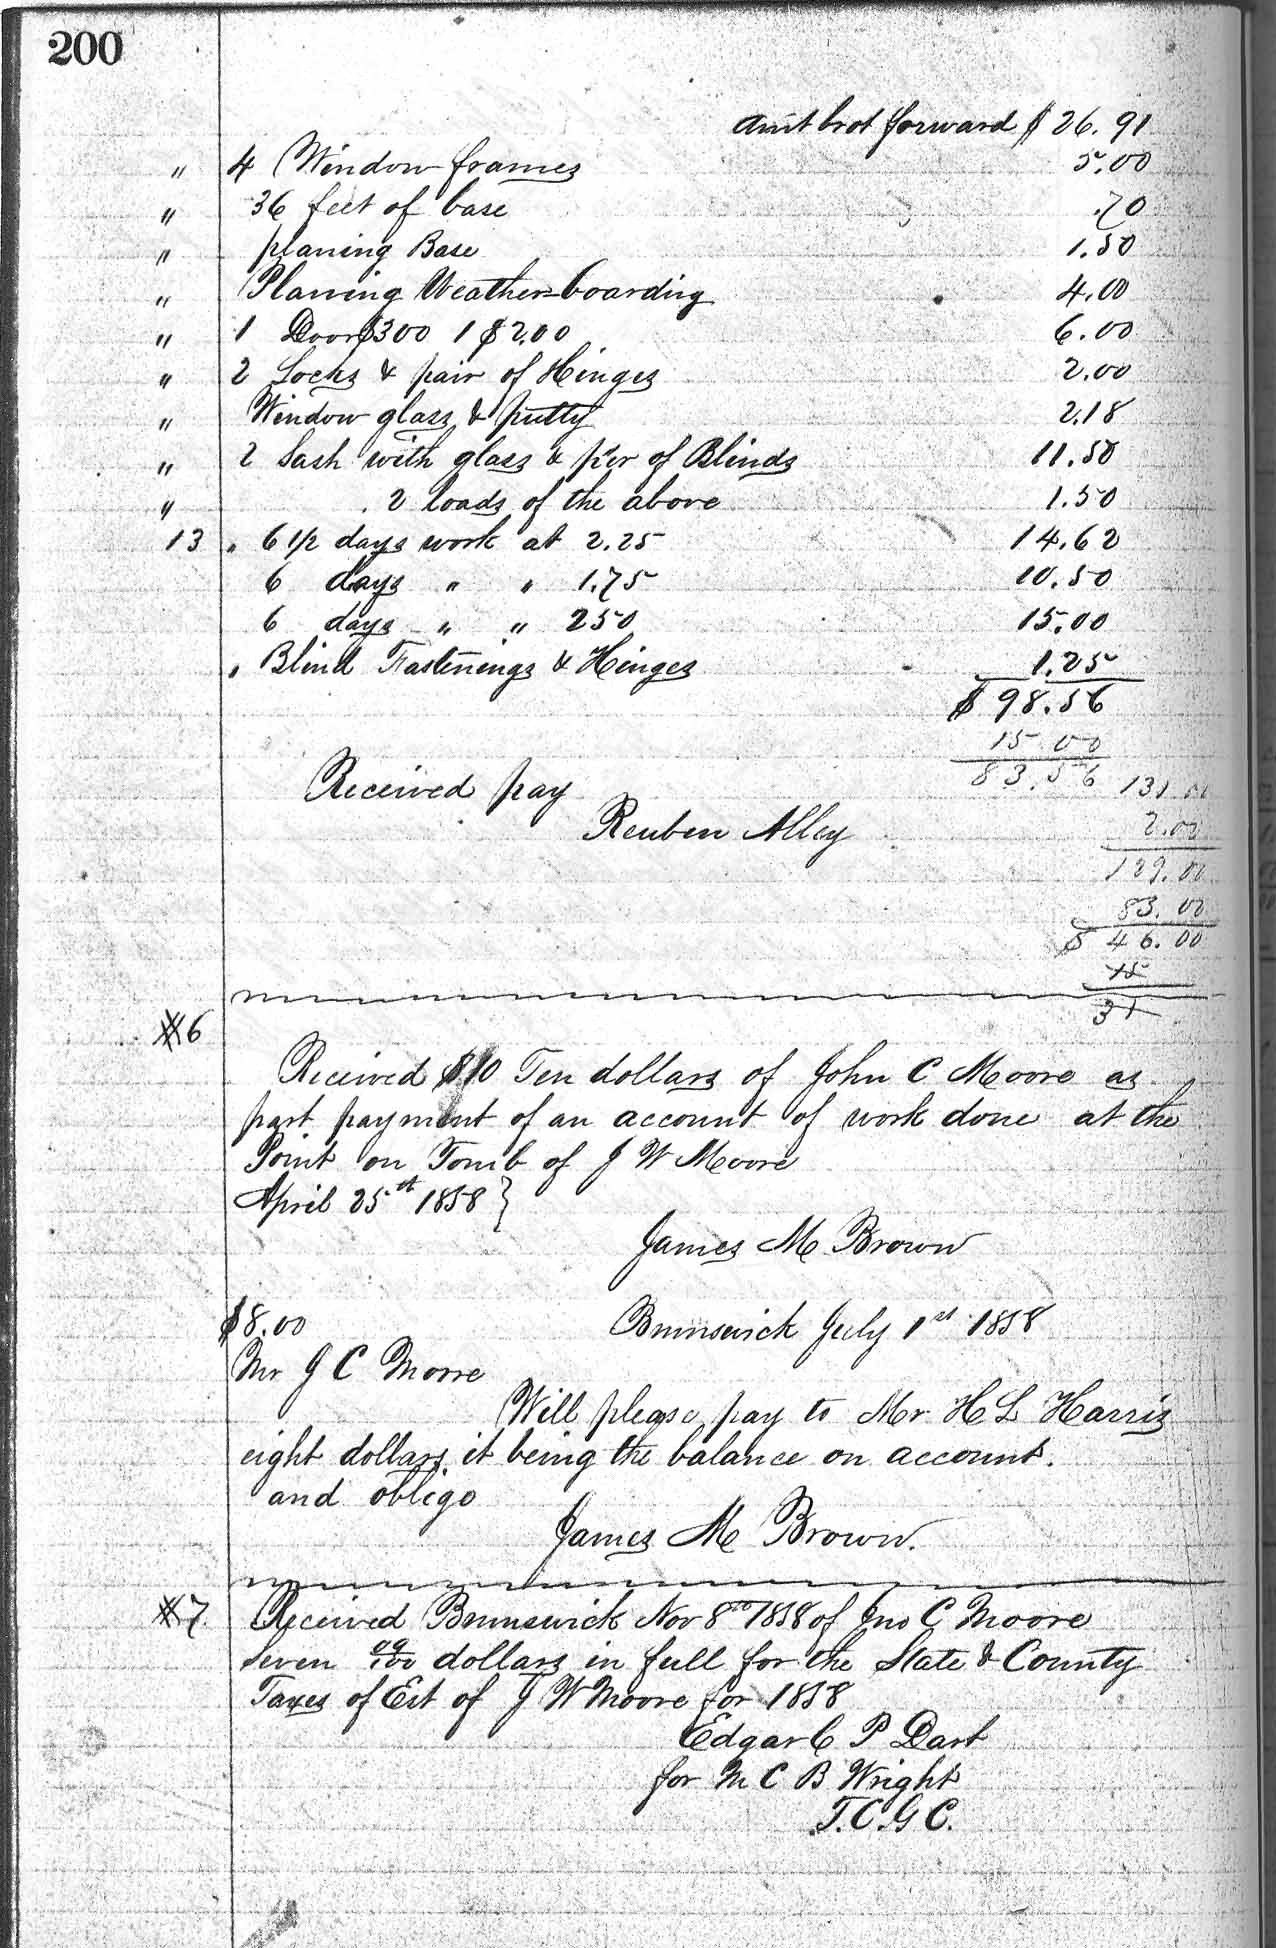 200
Amt brot forward $ 26.91
" 4 Window frames 5.00
" 36 feet of base .70
" planing Base 1.50
" Planing Weather-boarding 4.00
" 1 Door $300 1 $2.00 6.00
" 2 Locks & pair of Hinges 2.00
" Window glass & putty 2.18
" 2 Sash with glass & p'r of Blinds 11.50
" 2 loads of the above 1.50
13 " 6 1/2 days work at 2.25 14.62
6 days " " 1.75 10.50
6 days " " 250 15.00
" Blind Fastenings & Hinges 1.25
$ 98.56
15 00
83.56 131 00
Received pay
2.00
Reuben Alley
129.00
83.00
$ 46.00
15
31
#6
Received $10 Ten dollars of John C Moore as
part payment of an account of work done at the
Point on Tomb of J W Moore
April 25th 1858 }
James M Brown
$8.00 Brunswick July 1st 1858
Mr J C Moore
Will please pay to Mr H L Harris
eight dollars it being the balance on account.
and obligo
James M Brown.
#7. Received Brunswick Nov 8th 1858 of Jno C Moore
Seven 09/100 dollars in full for the State & County
Taxes of Est of J W Moore for 1858
Edgar C P Dart
for M C B Wright
T.C.G C.